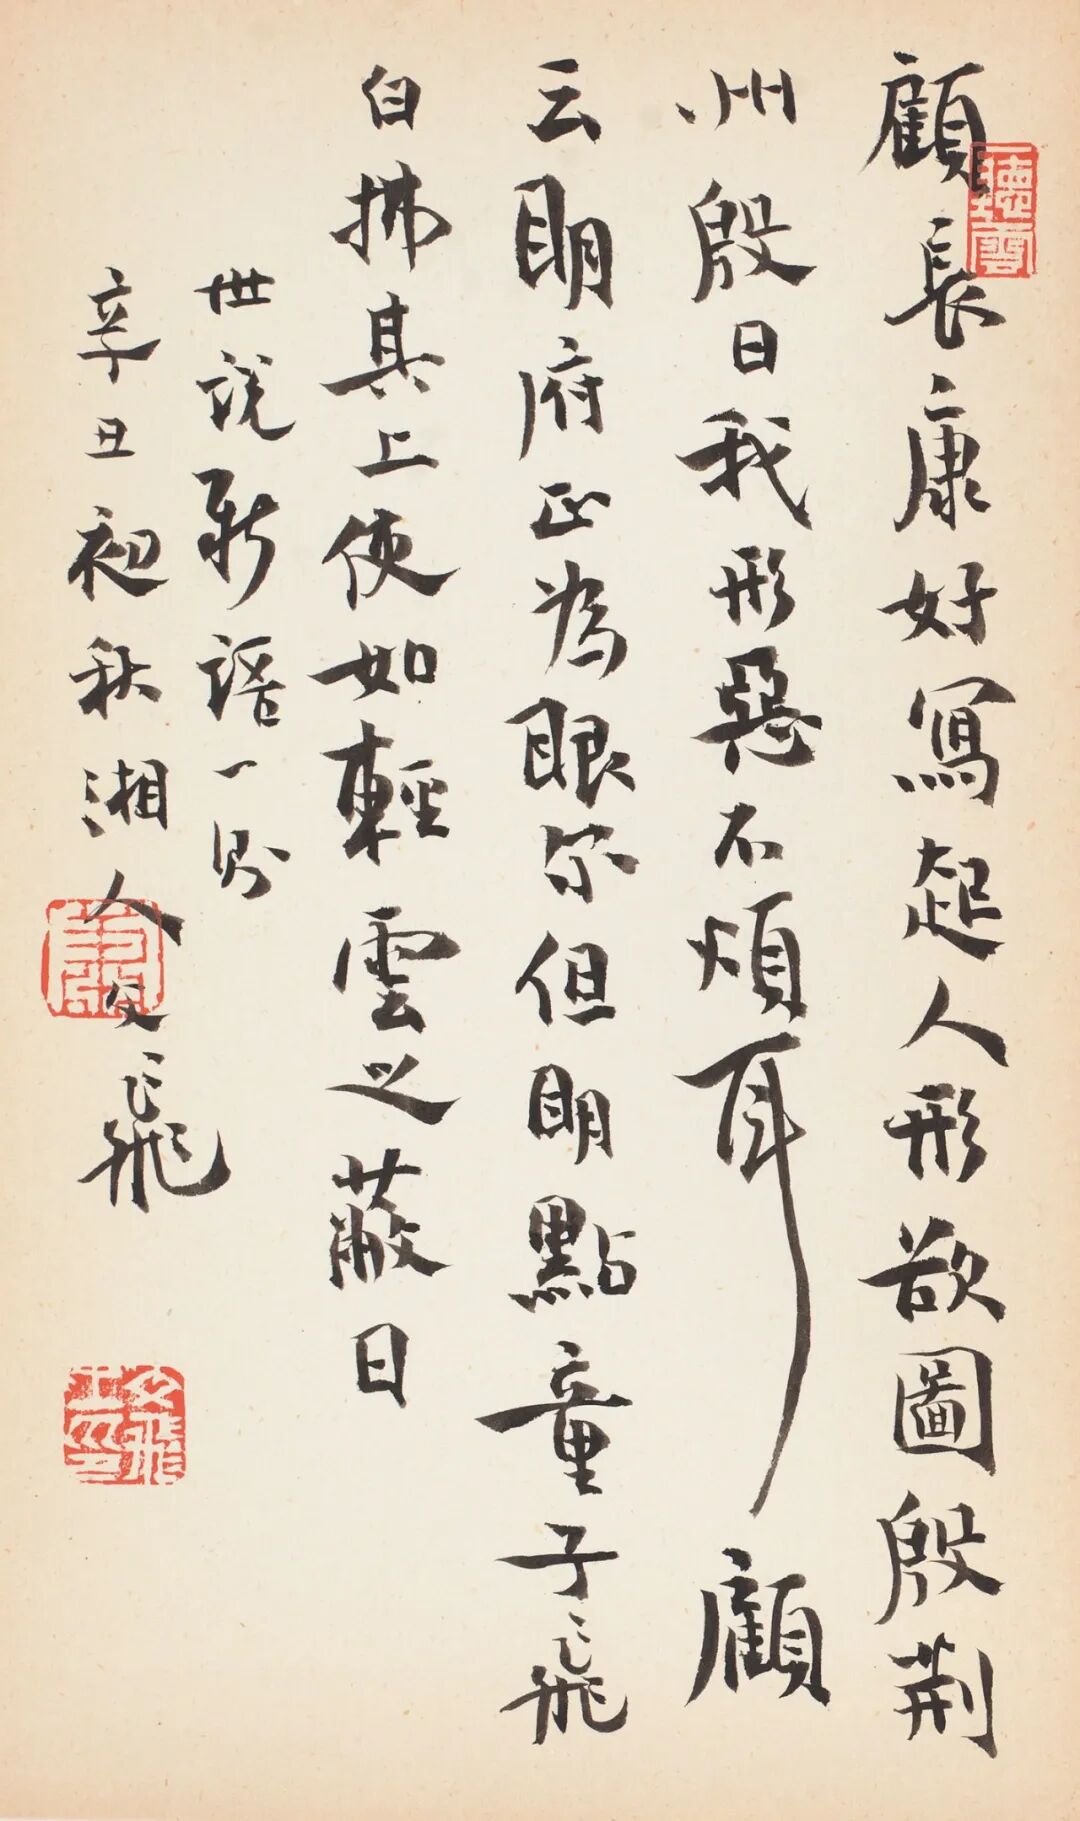 顧長康好寫起人形欲圖殷荆
州殷曰我形惡不煩耳顧
云明府正為眼尔但明點童子飛
白拂其上使如輕雲之蔽日
世說新語一則
辛丑初秋湘人文飛